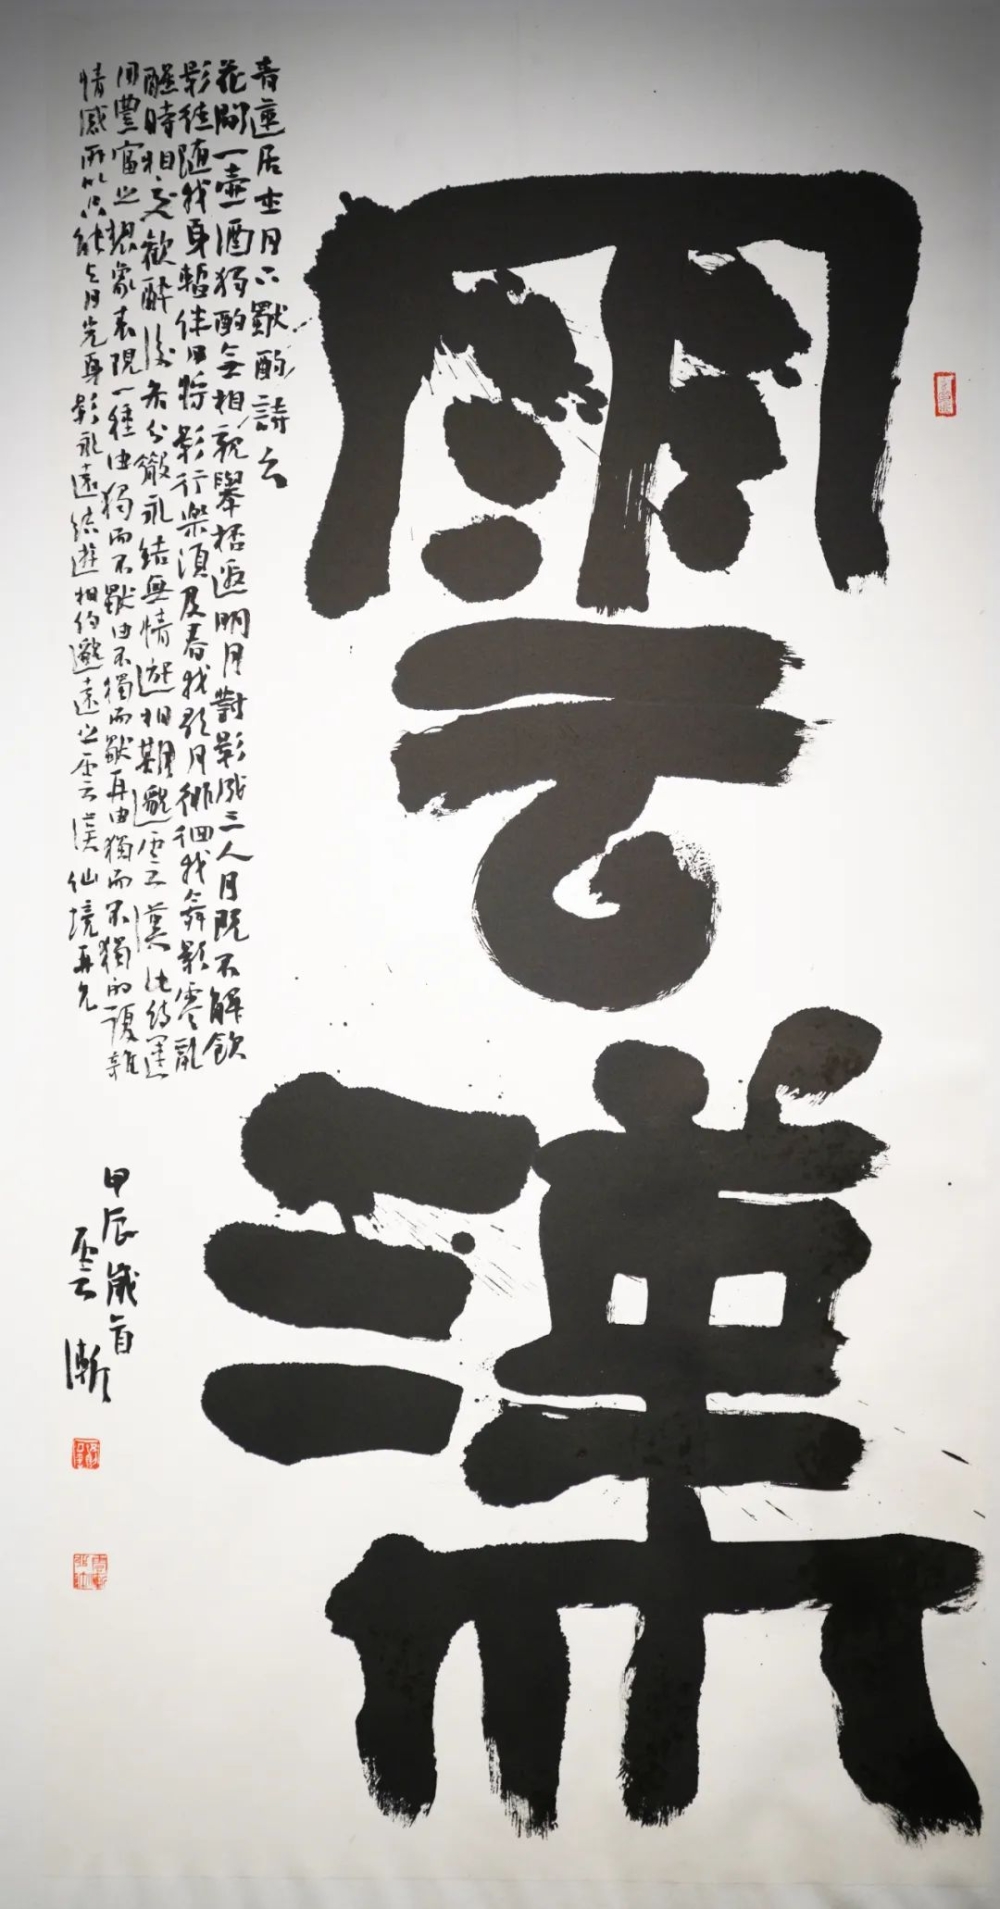 雲漢
青蓮居士月下獨酌詩云
花間一壺酒獨酌無相親舉杯邀明月對影成三人月既不解飲
影徒隨我身暫伴月將影行樂須及春我歌月徘徊我舞影零亂
醒時相交歡醉後各分散永結無情遊相期邈雲漢此詩運
用豐富之想象表現一種由獨而不獨由不獨而獨再由獨而不獨的複雜
情感所以只能與月光身影永遠結遊相約邈遠之雲漢仙境再見
甲辰歲首
雲漸